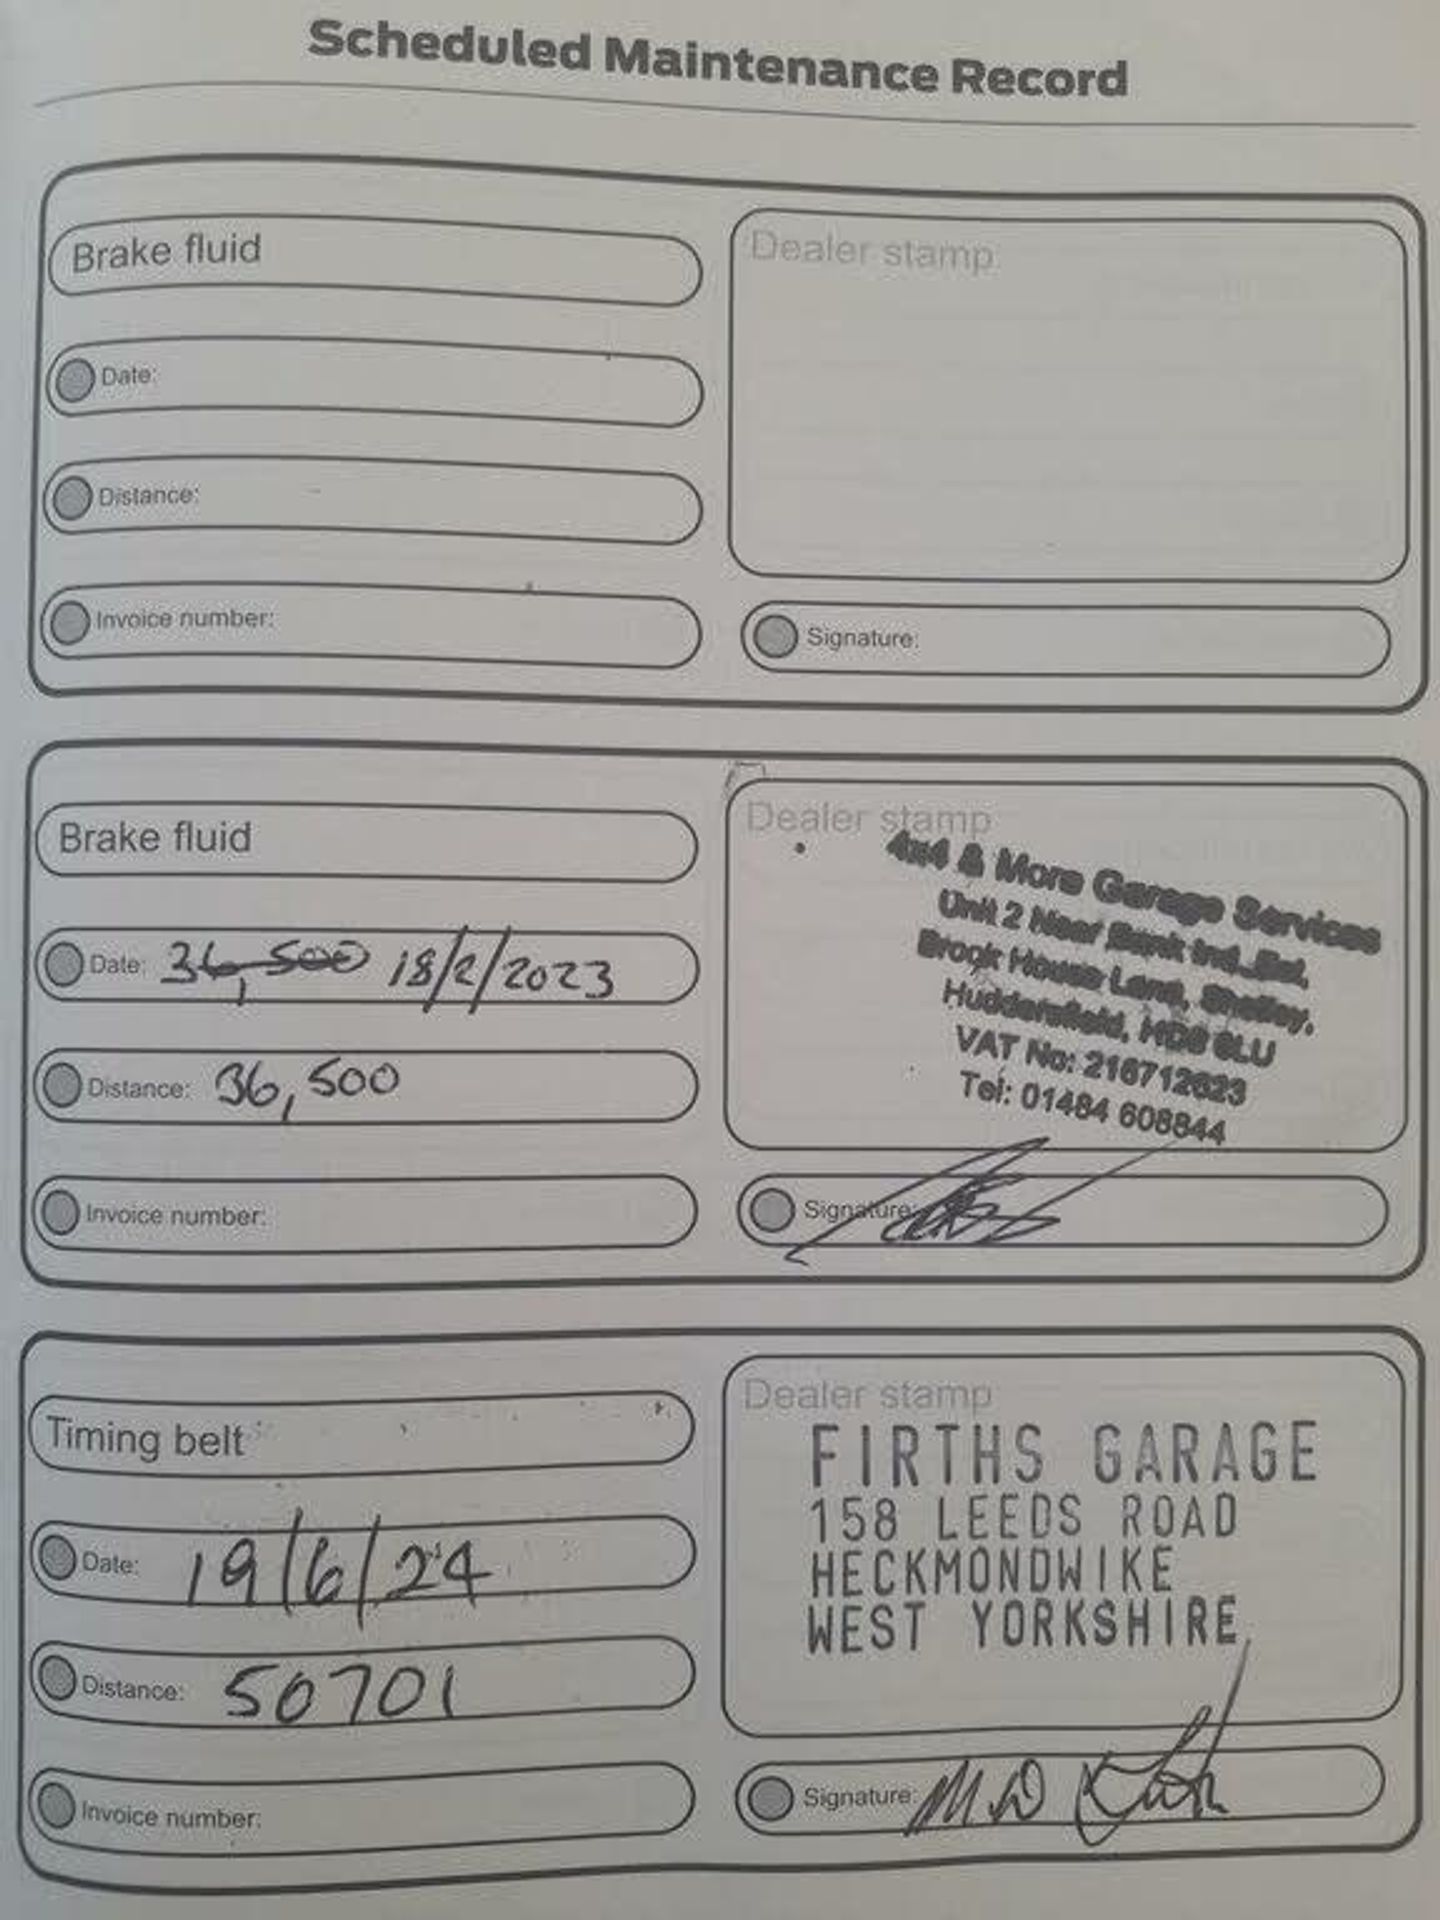 Scheduled Maintenance Record
Brake fluid
Date:
Distance:
Invoice number:
Dealer stamp
Signature:
Brake fluid
Date: 36,500 18/2/2023
Distance: 36,500
Invoice number:
Dealer stamp
4x4 & More Garage Services
Unit 2 Near Bank Ind. Est,
Brook House Lane, Shelley,
Huddersfield, HD8 8LU
VAT No: 216712623
Tel: 01484 608844
Signature:
Timing belt
Date: 19/6/24
Distance: 50701
Invoice number:
Dealer stamp
FIRTHS GARAGE
158 LEEDS ROAD
HECKMONDWIKE
WEST YORKSHIRE
Signature: